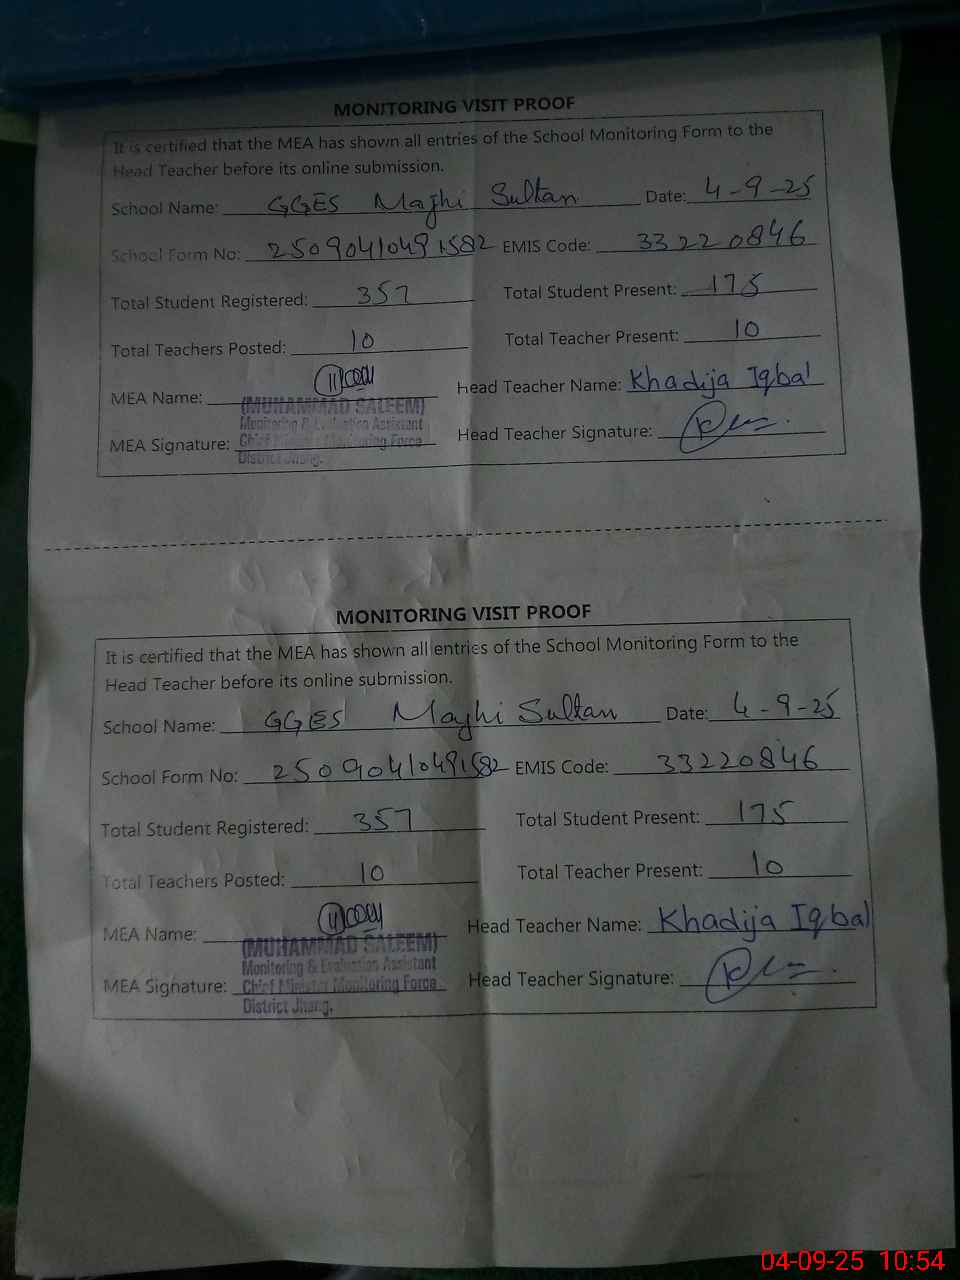 MONITORING VISIT PROOF
It is certified that the MEA has shown all entries of the School Monitoring Form to the
Head Teacher before its online submission.
School Name: GGES Maghi Sultan Date: 4-9-25
School Form No: 25090410491582 EMIS Code: 33220846
Total Student Registered: 357 Total Student Present: 175
Total Teachers Posted: 10 Total Teacher Present: 10
MEA Name: Head Teacher Name: Khadija Iqbal
(MUHAMMAD SALEEM)
Monitoring & Evaluation Assistant
MEA Signature: Chief Minister Monitoring Force Head Teacher Signature:
District Jhang.
MONITORING VISIT PROOF
It is certified that the MEA has shown all entries of the School Monitoring Form to the
Head Teacher before its online submission.
School Name: GGES Maghi Sultan Date: 4-9-25
School Form No: 25090410491582 EMIS Code: 33220846
Total Student Registered: 357 Total Student Present: 175
Total Teachers Posted: 10 Total Teacher Present: 10
MEA Name: Head Teacher Name: Khadija Iqbal
(MUHAMMAD SALEEM)
Monitoring & Evaluation Assistant
MEA Signature: Chief Minister Monitoring Force Head Teacher Signature:
District Jhang.
04-09-25 10:54